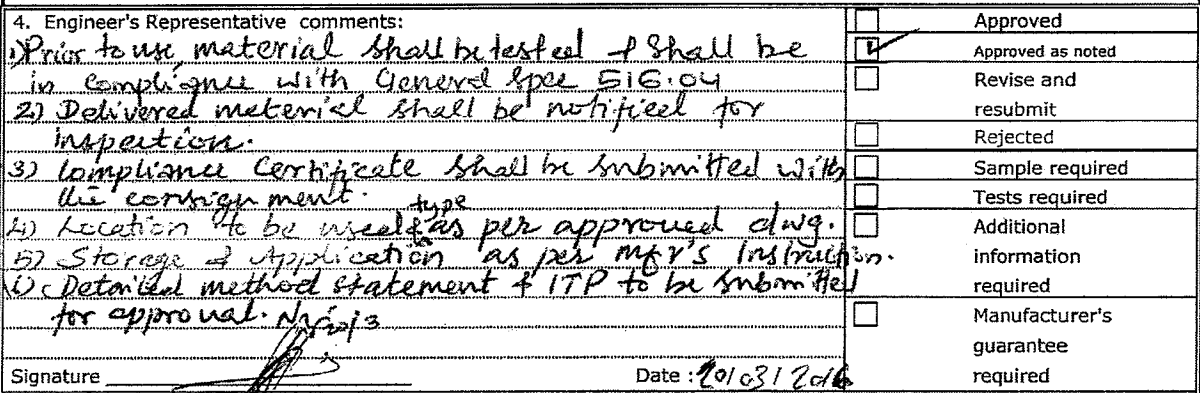 4. Engineer's Representative comments:
1) Prior to use, material shall be tested & shall be
in compliance with General Spec 516.04
2) Delivered material shall be notified for
inspection.
3) Compliance Certificate shall be submitted with
the consignment.
type
4) Location to be used & as per approved dwg.
5) Storage & Application as per mfr's Instruction.
6) Detailed method statement & ITP to be submitted
for approval.
Signature
Date : 20/03/2016
Approved
Approved as noted
Revise and
resubmit
Rejected
Sample required
Tests required
Additional
information
required
Manufacturer's
guarantee
required